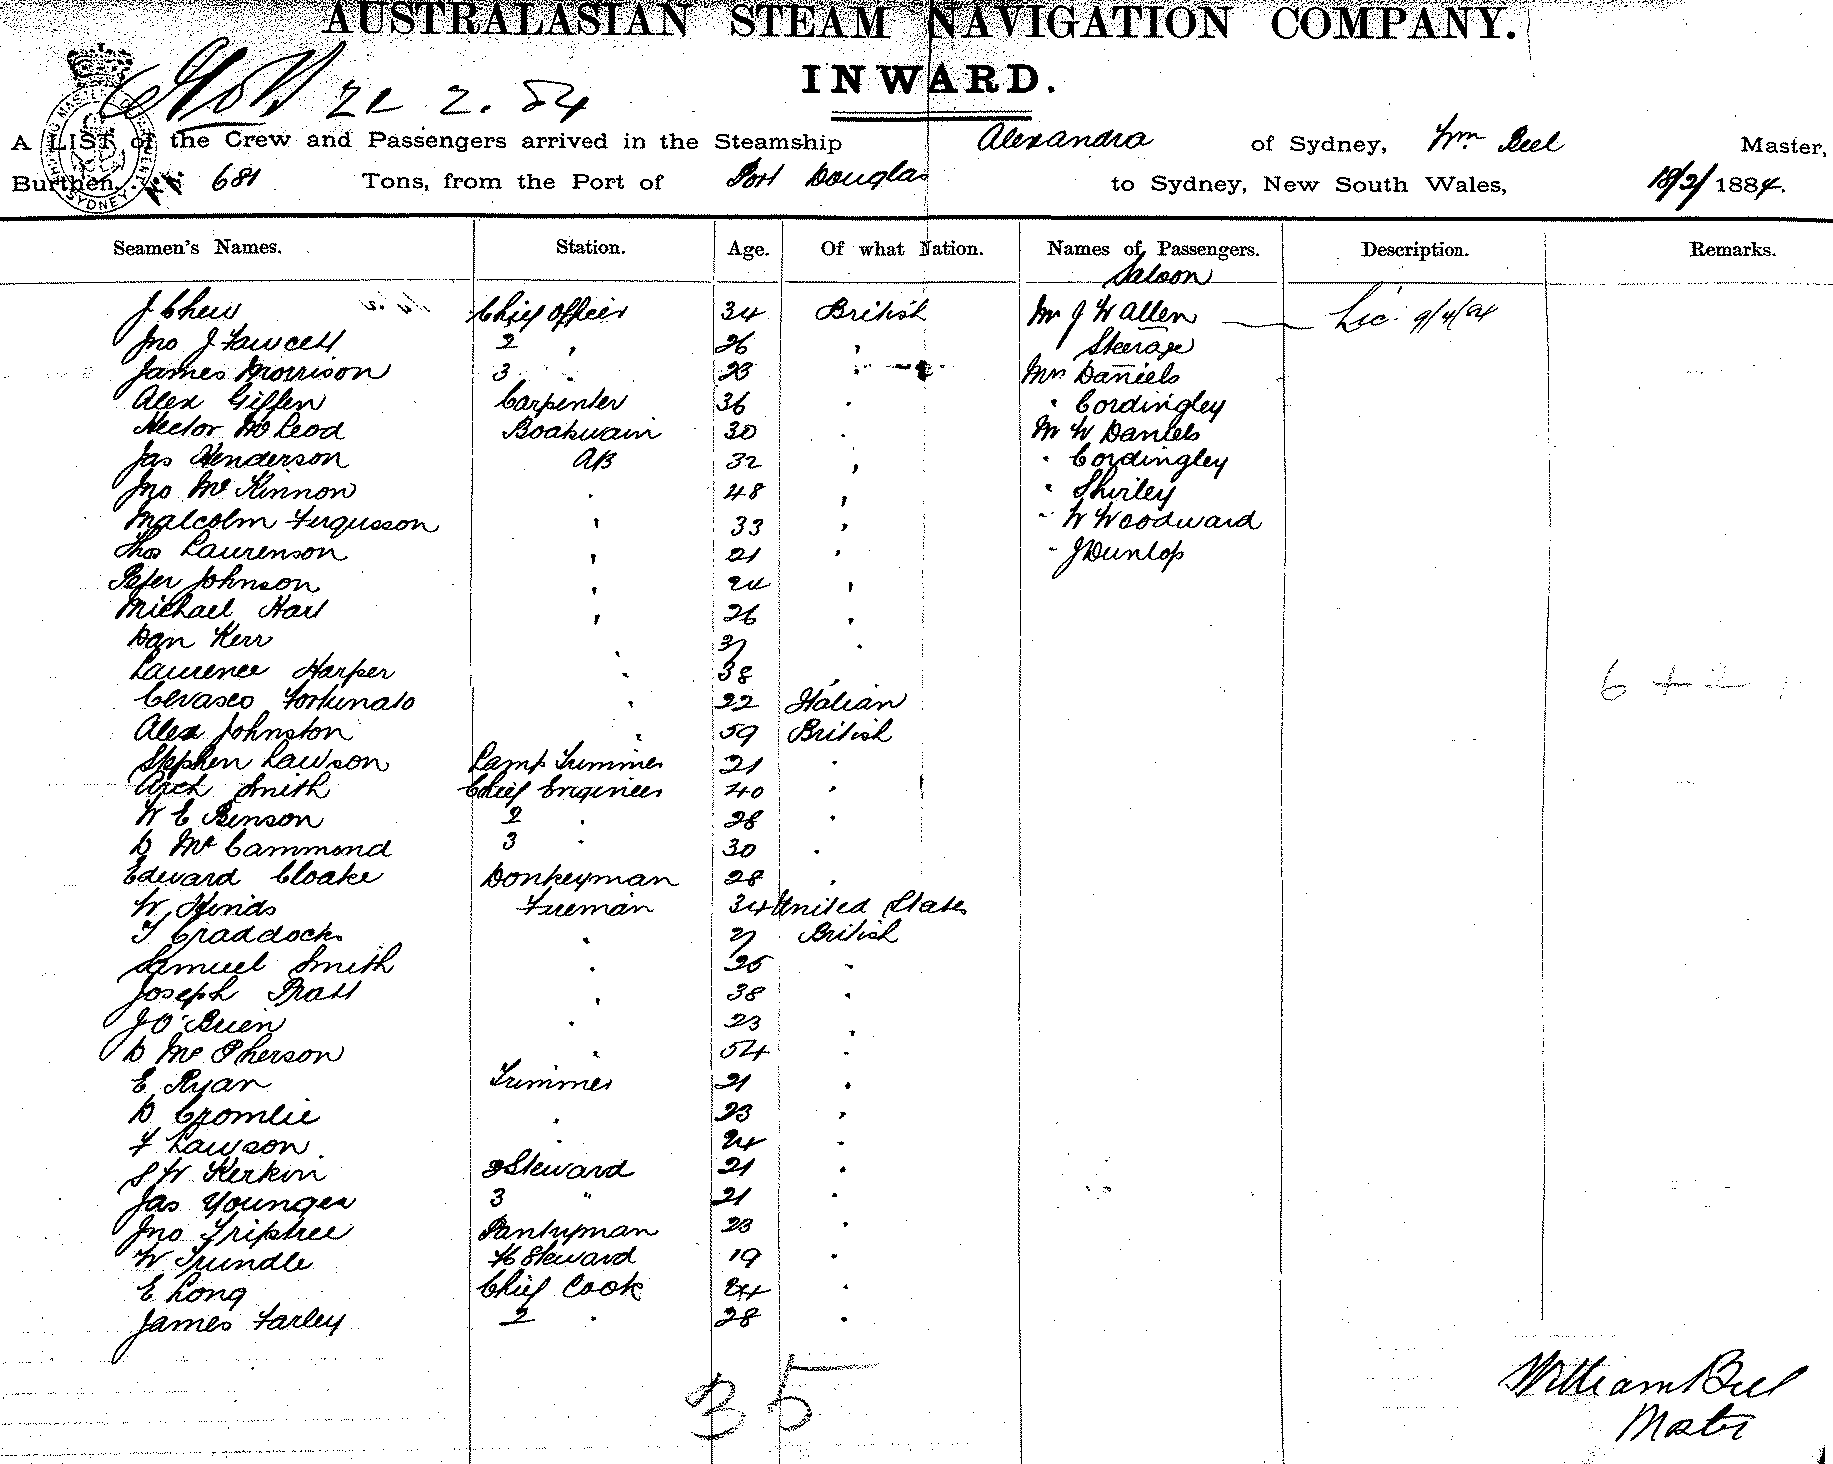 AUSTRALASIAN STEAM NAVIGATION COMPANY.
INWARD.
22 2. 84
A LIST of the Crew and Passengers arrived in the Steamship Alexandra of Sydney, Wm Beel Master,
Burthen 681 Tons, from the Port of Port Douglas to Sydney, New South Wales, 18/2/ 1884.
Seamen's Names. Station. Age. Of what Nation. Names of Passengers. Description. Remarks.
Saloon
J Chew Chief Officer 34 British Mr J W Allen Lic.
Jno J Fawcett 2 " 26 " Steerage
James Morrison 3 " 23 " Mrs Daniels
Alex Giffen Carpenter 36 " " Cordingley
Hector McLeod Boatswain 30 " Mr W Daniels
Jas Henderson AB 32 " " Cordingley
Jno McKinnon " 48 " " Shirley
Malcolm Fergusson " 33 " " W Woodward
Thos Laurenson " 21 " " J Dunlop
Peter Johnson " 24 "
Michael Hart " 26 "
Dan Kerr " "
Laurence Harper " 38 "
Cevasco Fortunato " 22 Italian
Alex Johnston " 59 British
Stephen Lawson Lamp Trimmer 21 "
Arch Smith Chief Engineer 40 "
W E Benson 2 " 28 "
D McCammond 3 " 30 "
Edward Cloake Donkeyman 28 "
W Hinds Fireman 34 United States
T Craddock " 27 British
Samuel Smith " 25 "
Joseph Pratt " 38 "
J O'Brien " 23 "
D McPherson " 54 "
E Ryan Trimmer 21 "
D Cromlie " 23 "
F Lawson " 24 "
S W Kerkin 2 Steward 21 "
Jas Younger 3 " 21 "
Jno Friptree Pantryman 23 "
W Trundle Steward 19 "
E Long Chief Cook 24 "
James Farley 2 " 28 "
35
William Beel
Master